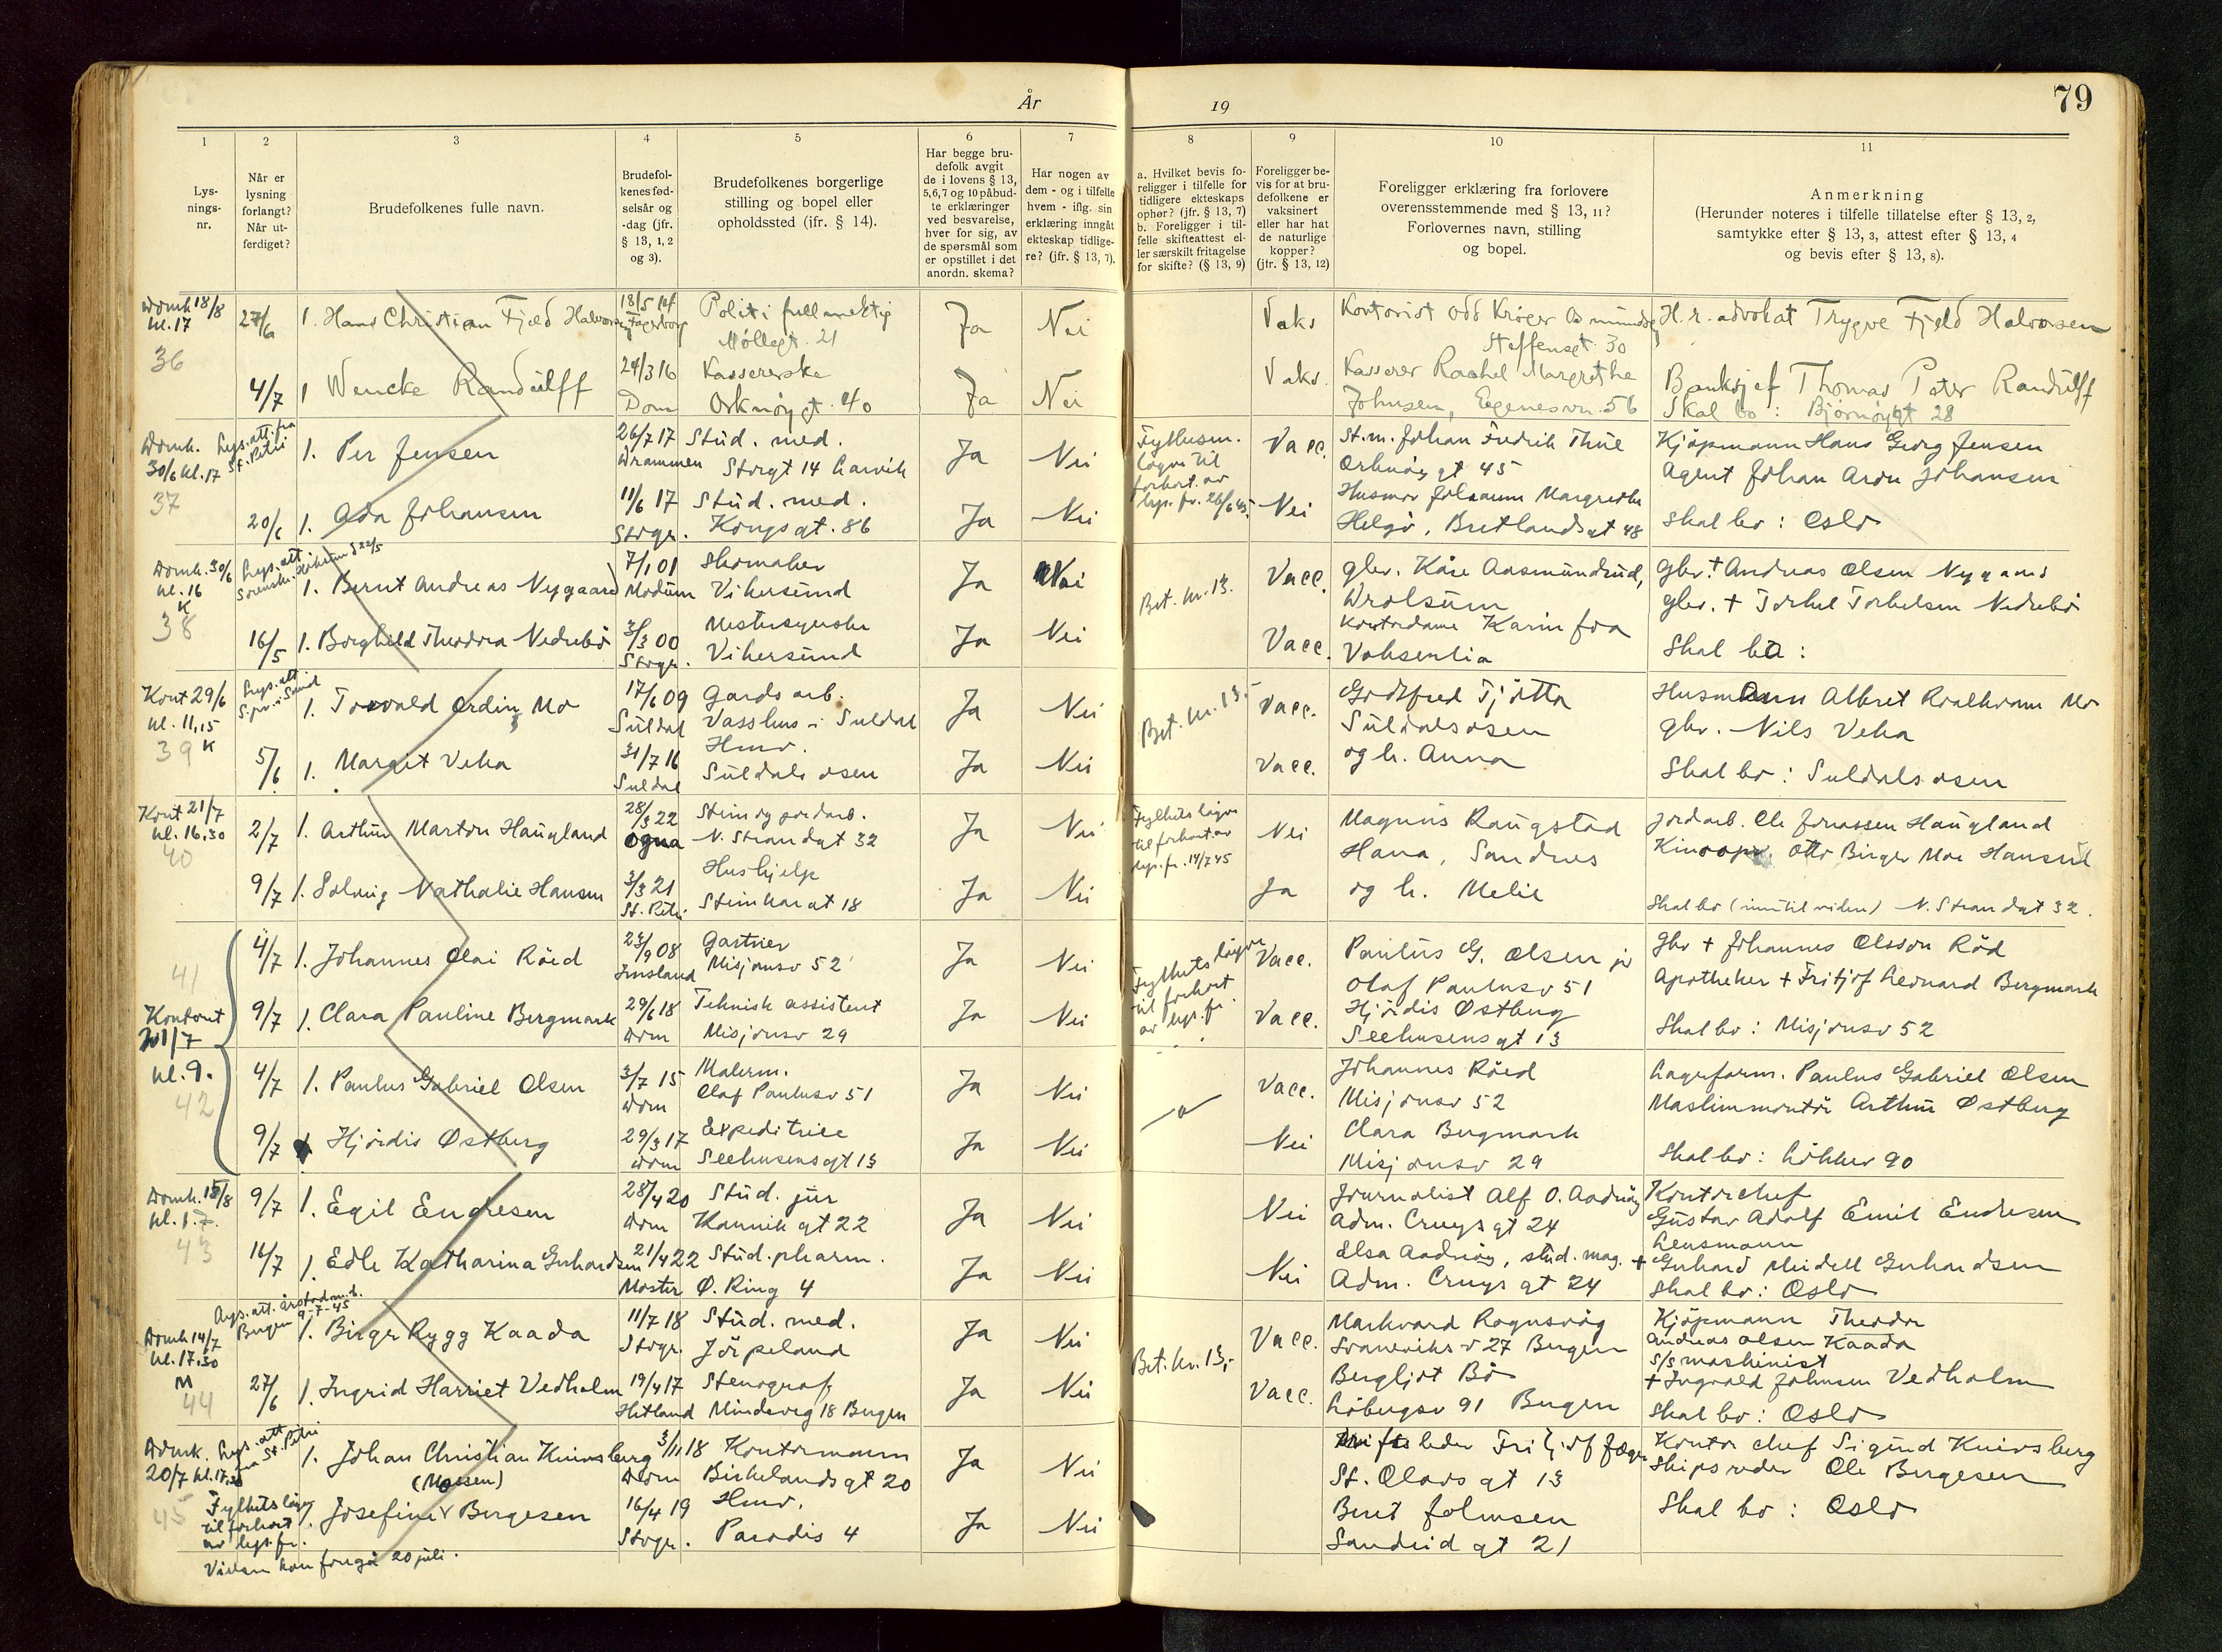 År
19
79
1
Lys-
nings-
nr.
2
Når er
lysning
forlangt?
Når ut-
ferdiget?
3
Brudefolkenes fulle navn.
4
Brudefol-
kenes fød-
selsår og
-dag (jfr.
§ 13, 1, 2
og 3).
5
Brudefolkenes borgerlige
stilling og bopel eller
opholdssted (ifr. § 14).
6
Har begge bru-
defolk avgit
de i lovens § 13,
5,6,7 og 10 påbud-
te erklæringer
ved besvarelse,
hver for sig, av
de spørsmål som
er opstillet i det
anordn. skema?
7
Har nogen av
dem - og i tilfelle
hvem - iflg. sin
erklæring inngåt
ekteskap tidlige-
re? (jfr. § 13, 7).
8
a. Hvilket bevis fo-
religger i tilfelle for
tidligere ekteskaps
ophør? (jfr. § 13, 7)
b. Foreligger i til-
felle skifteattest el-
ler særskilt fritagelse
for skifte? (§ 13, 9)
9
Foreligger be-
vis for at bru-
defolkene er
vaksinert
eller har hat
de naturlige
kopper?
(jfr. § 13, 12)
10
Foreligger erklæring fra forlovere
overensstemmende med § 13, 11?
Forlovernes navn, stilling
og bopel.
11
Anmerkning
(Herunder noteres i tilfelle tillatelse efter § 13, 2,
samtykke efter § 13, 3, attest efter § 13, 4
og bevis efter § 13, 8).
Domk 18/8
kl. 17
36
27/6 1. Hans Christian Fjeld Halvorsen 18/5 Fagerborg Politifullmektig
Møllegt. 21 Ja Nei Vaks Kontorist Odd Krøger Asmundsen
Steffensgt. 30 H.r. advokat Trygve Fjeld Halvorsen
4/7 1 Wencke Randulff 24/3 16 Dom Kassererske
Orknøygt. 40 Ja Nei Vaks. Kasserer Rachel Margrethe
Johnsen, Egenesvn. 56 Banksjef Thomas Peter Randulff
Skal bo: Bjørnøygt 28
Domk. 30/6 kl. 17
37
Lys. att. fra St. Petri
1. Per Jensen 26/7 17 Drammen Stud. med.
Storgt 14 Larvik Ja Nei Vacc. St.m. Johan Fredrik Thue
Orknøygt 45 Kjøpmann Hans Georg Jensen
Agent Johan Ardn Johansen
20/6 1. Ada Johansen 11/6 17 Stvgr. Stud. med.
Kongsgt. 86 Ja Nei Nei Husmor Johanne Margrethe
Helgø, Bretlandsgt 48 Skal bo: Oslo
Domk. 30/6
kl. 16
K
38
1. Bernt Andreas Nygaard 7/1 01 Modum Skomaker
Vikersund Ja Nei Bet. kr. 13. Vacc. gbr. Kåre Aasmundrud,
Drolsum gbr. + Andreas Olsen Nygaard
gbr. + Torkel Torkelsen Nedrebø
16/5 1. Borghild Theodora Nedrebø 3/3 00 Stvgr. Mestersyerske
Vikersund Ja Nei Vacc. Kontordame Karin foa
Voksenlia Skal bo:
Kont 29/6
kl. 11,15
39 K
1. Torvald Ordin Mo 17/6 09 Suldal Gardsarb.
Vasshus i Suldal Ja Nei Bet. kr. 13.- Vacc. Godtfred Tjøtta
Suldalsosen Husmann Albret Roalkvam Mo
gbr. Nils Veka
5/6 1. Margit Veka 31/7 16 Suldal Husv.
Suldalsosen Ja Nei Vacc. og h. Anna Skal bo: Suldalsosen
Kont 21/7
kl. 16.30
40
2/7 1. Arthur Marton Haugland 28/3 22 Ogna Stein og jordarb.
N. Strandgt 32 Ja Nei Nei Magnus Raugstad
Hana, Sandnes Jordarb. Ole Jonassen Haugland
Kinoopr. Otto Birger Moe Hansen
9/7 1. Solveig Nathalie Hansen 3/3 21 St. Petri Hushjelp
Steinkargt 18 Ja Nei Ja og h. Melie Skal bo (inntil viden) N. Strandgt 32.
41
Kontoret
21/7
kl. 9.
4/7 1. Johannes Olai Röed 23/9 08 Imsland Gartner
Misjonsv 52 Ja Nei Vacc. Paulus G. Olsen jr
Olaf Paulusv 51 gbr + Johannes Olsson Röd
Apotheker + Fritjof Leonard Bergmark
9/7 1. Clara Pauline Bergmark 29/6 18 Dom Teknisk assistent
Misjonsv 29 Ja Nei Vacc. Hjördis Østberg
Seehusensgt 13 Skal bo: Misjonsv 52
42
4/7 1. Paulus Gabriel Olsen 3/7 15 Dom Malerm.
Olaf Paulusv 51 Ja Nei Vacc. Johannes Röed
Misjonsv 52 Lagerform. Paulus Gabriel Olsen
Maskinmontör Arthur Østberg
9/7 1. Hjördis Østberg 29/3 17 Dom Expeditrise
Seehusensgt 13 Ja Nei Nei Clara Bergmark
Misjonsv 29 Skal bo: Lökkev 90
Domk. 15/8
kl. 17.
43
9/7 1. Egil Endresen 28/4 20 Dom Stud. jur
Kannikgt 22 Ja Nei Nei Journalist Alf O. Aadnöy
Adm. Cruysgt 24 Kontorchef
Gustav Adolf Emil Endresen
16/7 1. Edle Katharina Gerhardsen 21/4 22 Moster Stud. pharm.
Ø. Ring 4 Ja Nei Nei Elsa Aadnöy, stud. mag.
Adm. Cruysgt 24 Lensmann
+ Gerhard Meidell Gerhardsen
Skal bo: Oslo
Domk 14/7
kl. 17.30
M
44
Lys. att. Årstad m.h. Bergen 9-7-45
1. Birger Rygg Kaada 11/7 18 Stvgr. Stud. med.
Jörpeland Ja Nei Bet. kr. 13,- Vacc. Markvard Rognsvåg
Svaneviksv 27 Bergen Kjöpmann Theodor
Andreas Olsen Kaada
27/6 1. Ingrid Harriet Vedholm 19/4 17 Hetland Stenograf
Mindeveg 18 Bergen Ja Nei Vacc. Bergljot Bö
Löbergsv 91 Bergen S/S maskinist
+ Ingvald Johnsen Vedholm
Skal bo: Oslo
Domk.
20/7 kl. 17.30
45
Lys. att fra St. Petri
1. Johan Christian Knivsberg
(Mossen) 3/11 18 Dom Kontormann
Birkelandsgt 20 Ja Nei Driftsleder Fritjof Jæger
St. Olavsgt 13 Kontorchef Sigurd Knivsberg
Skipsreder Ole Bergesen
1. Josefine Bergesen 16/4 19 Stvgr. Husv.
Paradis 4 Ja Nei Beret Johnsen
Sandeidgt 21 Skal bo: Oslo
Vielsen kan foregå 20 juli.